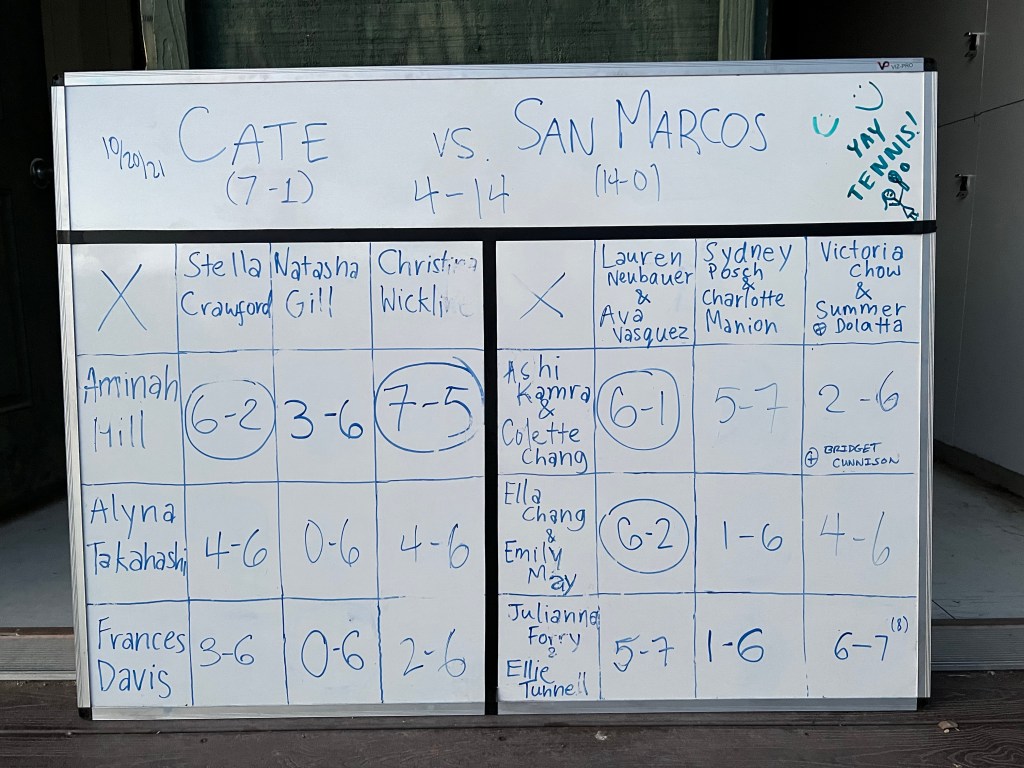 VP VIZ-PRO
10/20/21
CATE VS. SAN MARCOS
(7-1) 4-14 (14-0)
YAY
TENNIS!
X
Stella
Crawford
Natasha
Gill
Christina
Wickline
Aminah
Hill
6-2 3-6 7-5
Alyna
Takahashi
4-6 0-6 4-6
Frances
Davis
3-6 0-6 2-6
X
Lauren
Neubauer
&
Ava
Vasquez
Sydney
Posch
&
Charlotte
Manion
Victoria
Chow
&
Summer
⊕ Dolatta
Ashi
Kamra
&
Colette
Chang
6-1 5-7 2-6
⊕ BRIDGET
CUNNISON
Ella
Chang
&
Emily
May
6-2 1-6 4-6
Julianna
Forry
&
Ellie
Tunnell
5-7 1-6 6-7 (8)